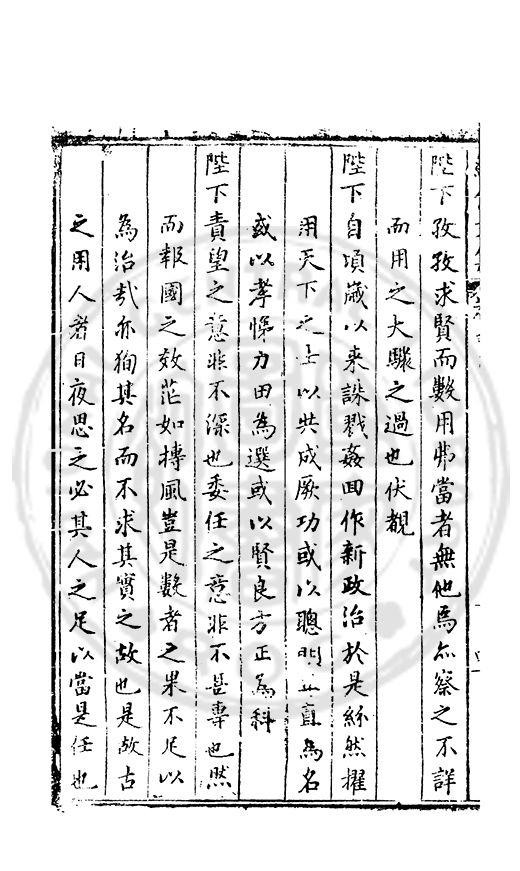 陛下孜孜求賢而數用弗當者無他焉尒察之不詳
而用之大驟之過也伏覩
陛下自頃歲以来誅戮姦回作新政治於是紛然擢
用天下之士以共成厥功或以聰明正直為名
或以孝悌力田為選或以賢良方正為科
陛下責望之意非不深也委任之意非不甚專也然
而報國之效茫如摶風豈是數者之果不足以
為治㢤亦狥其名而不求其實之故也是故古
之用人者日夜思之必其人之足以當是任也